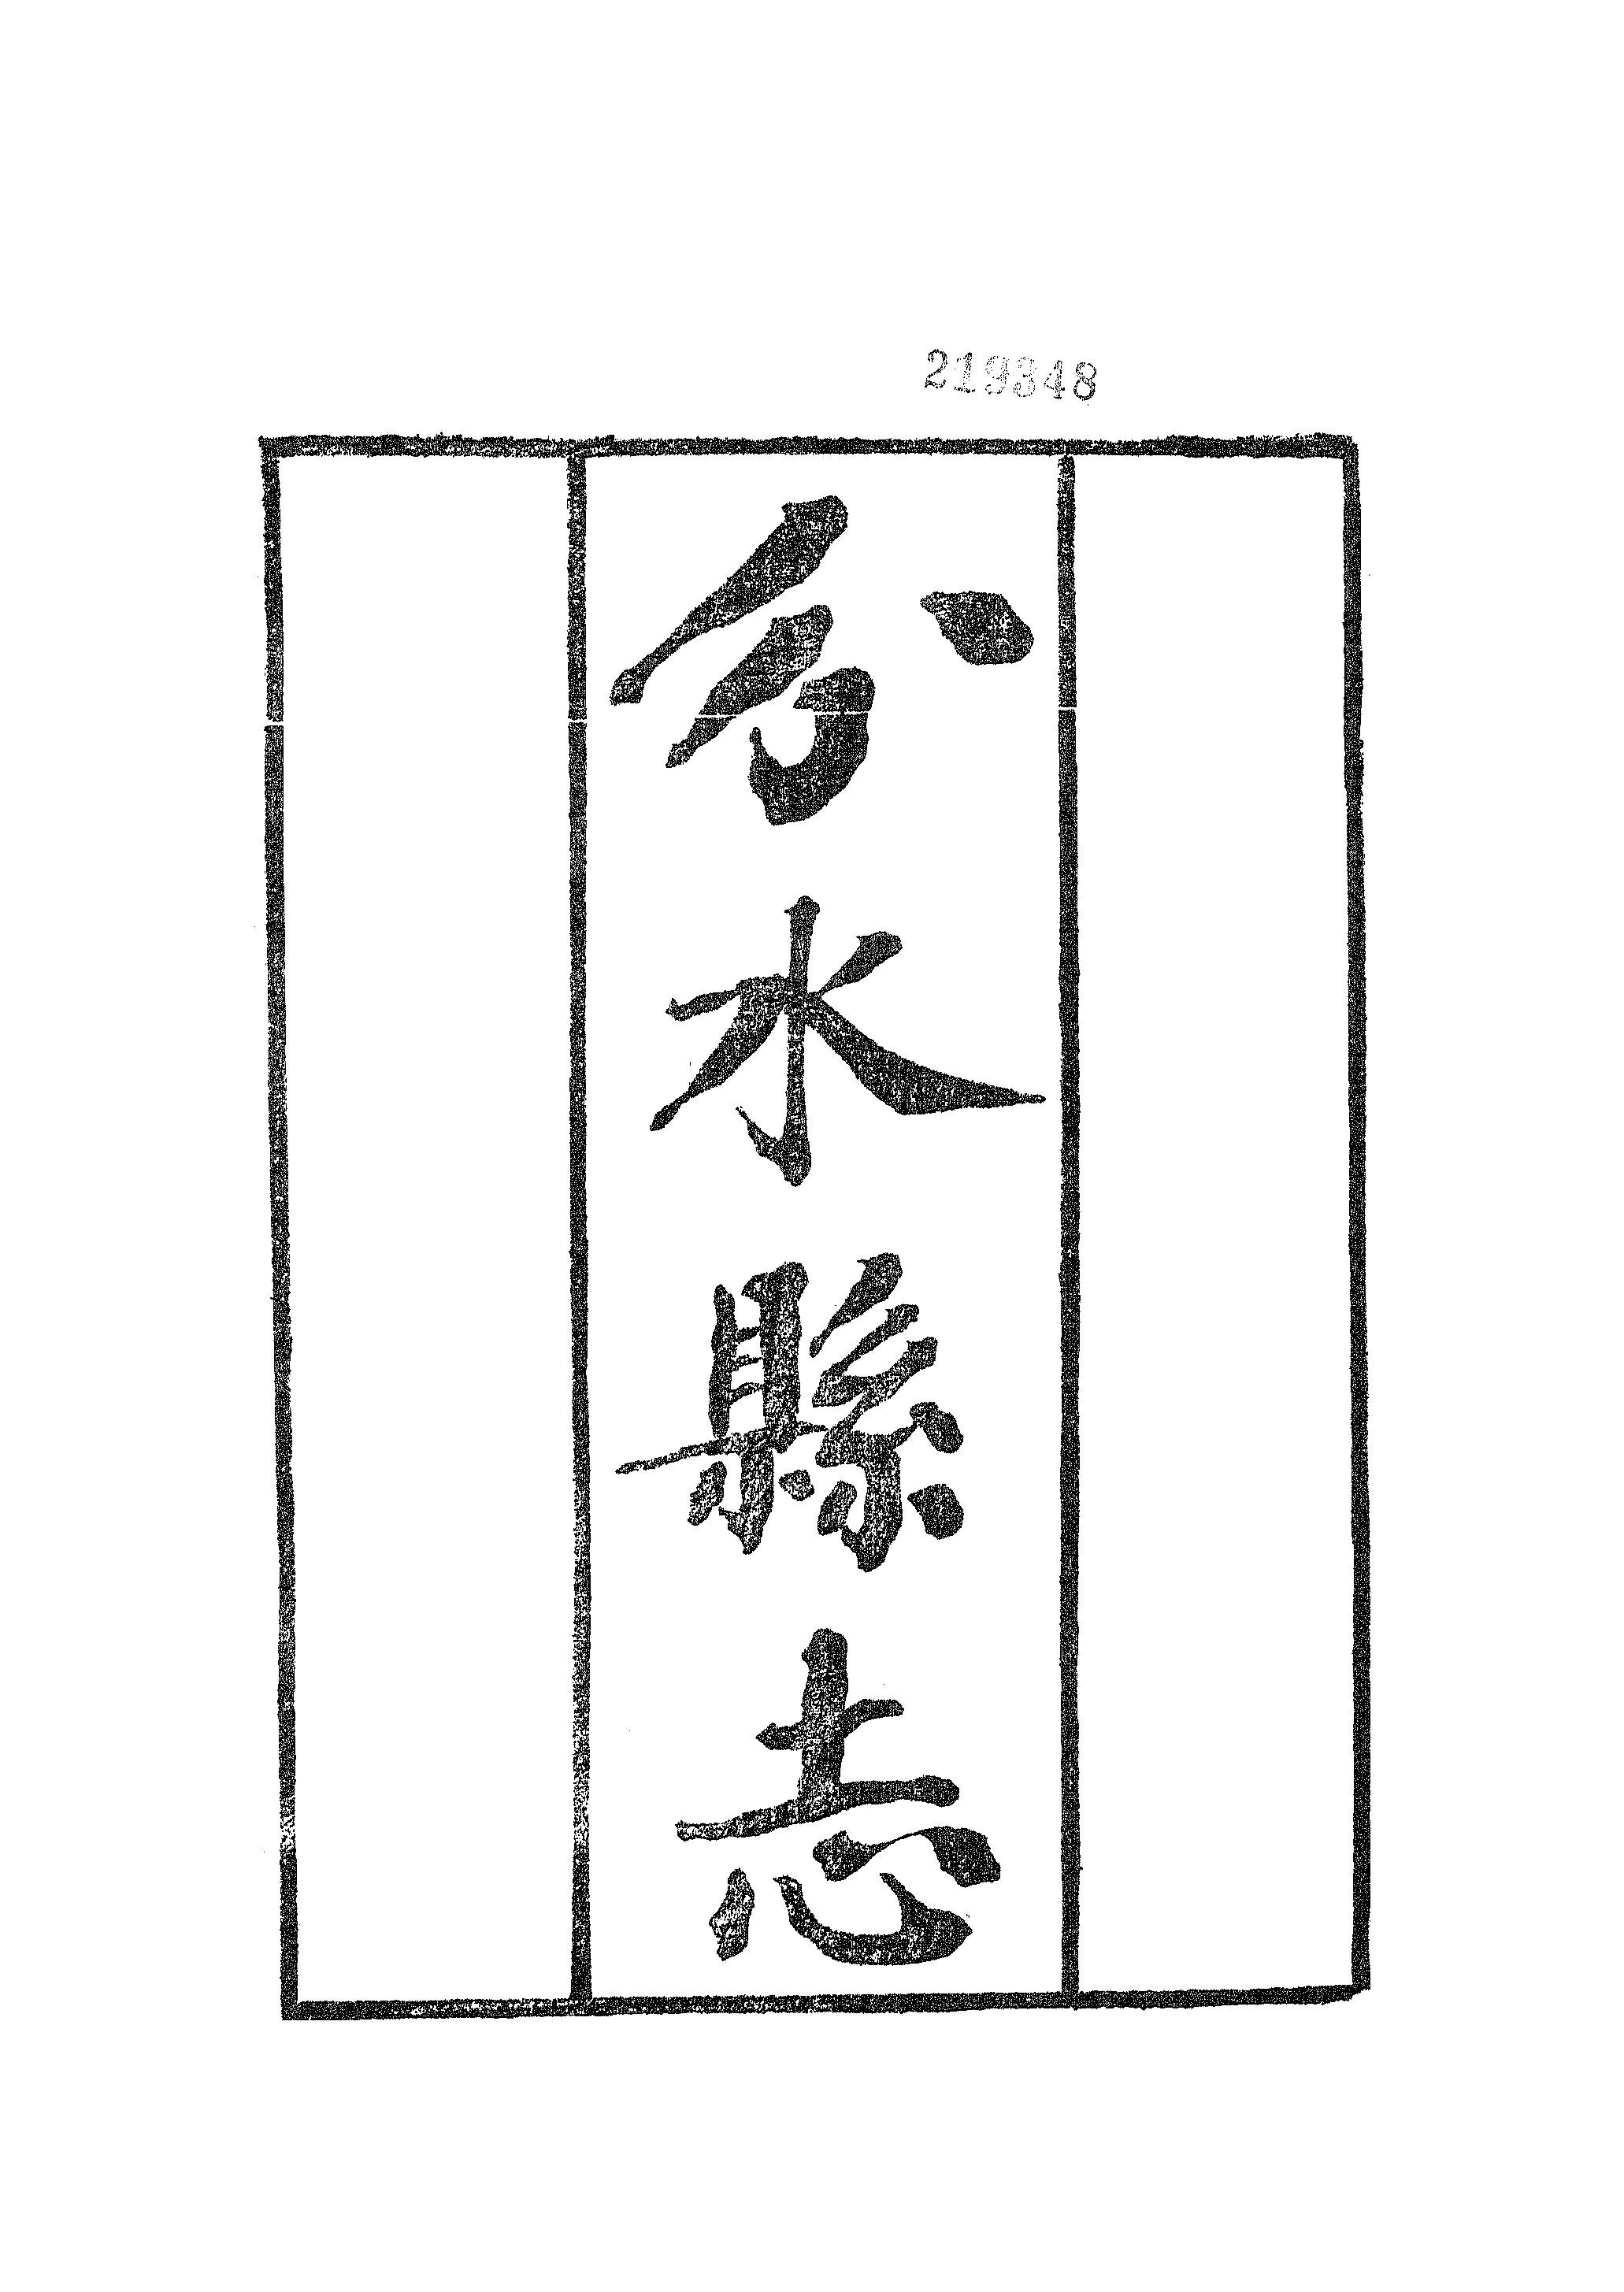 219348
分水縣志